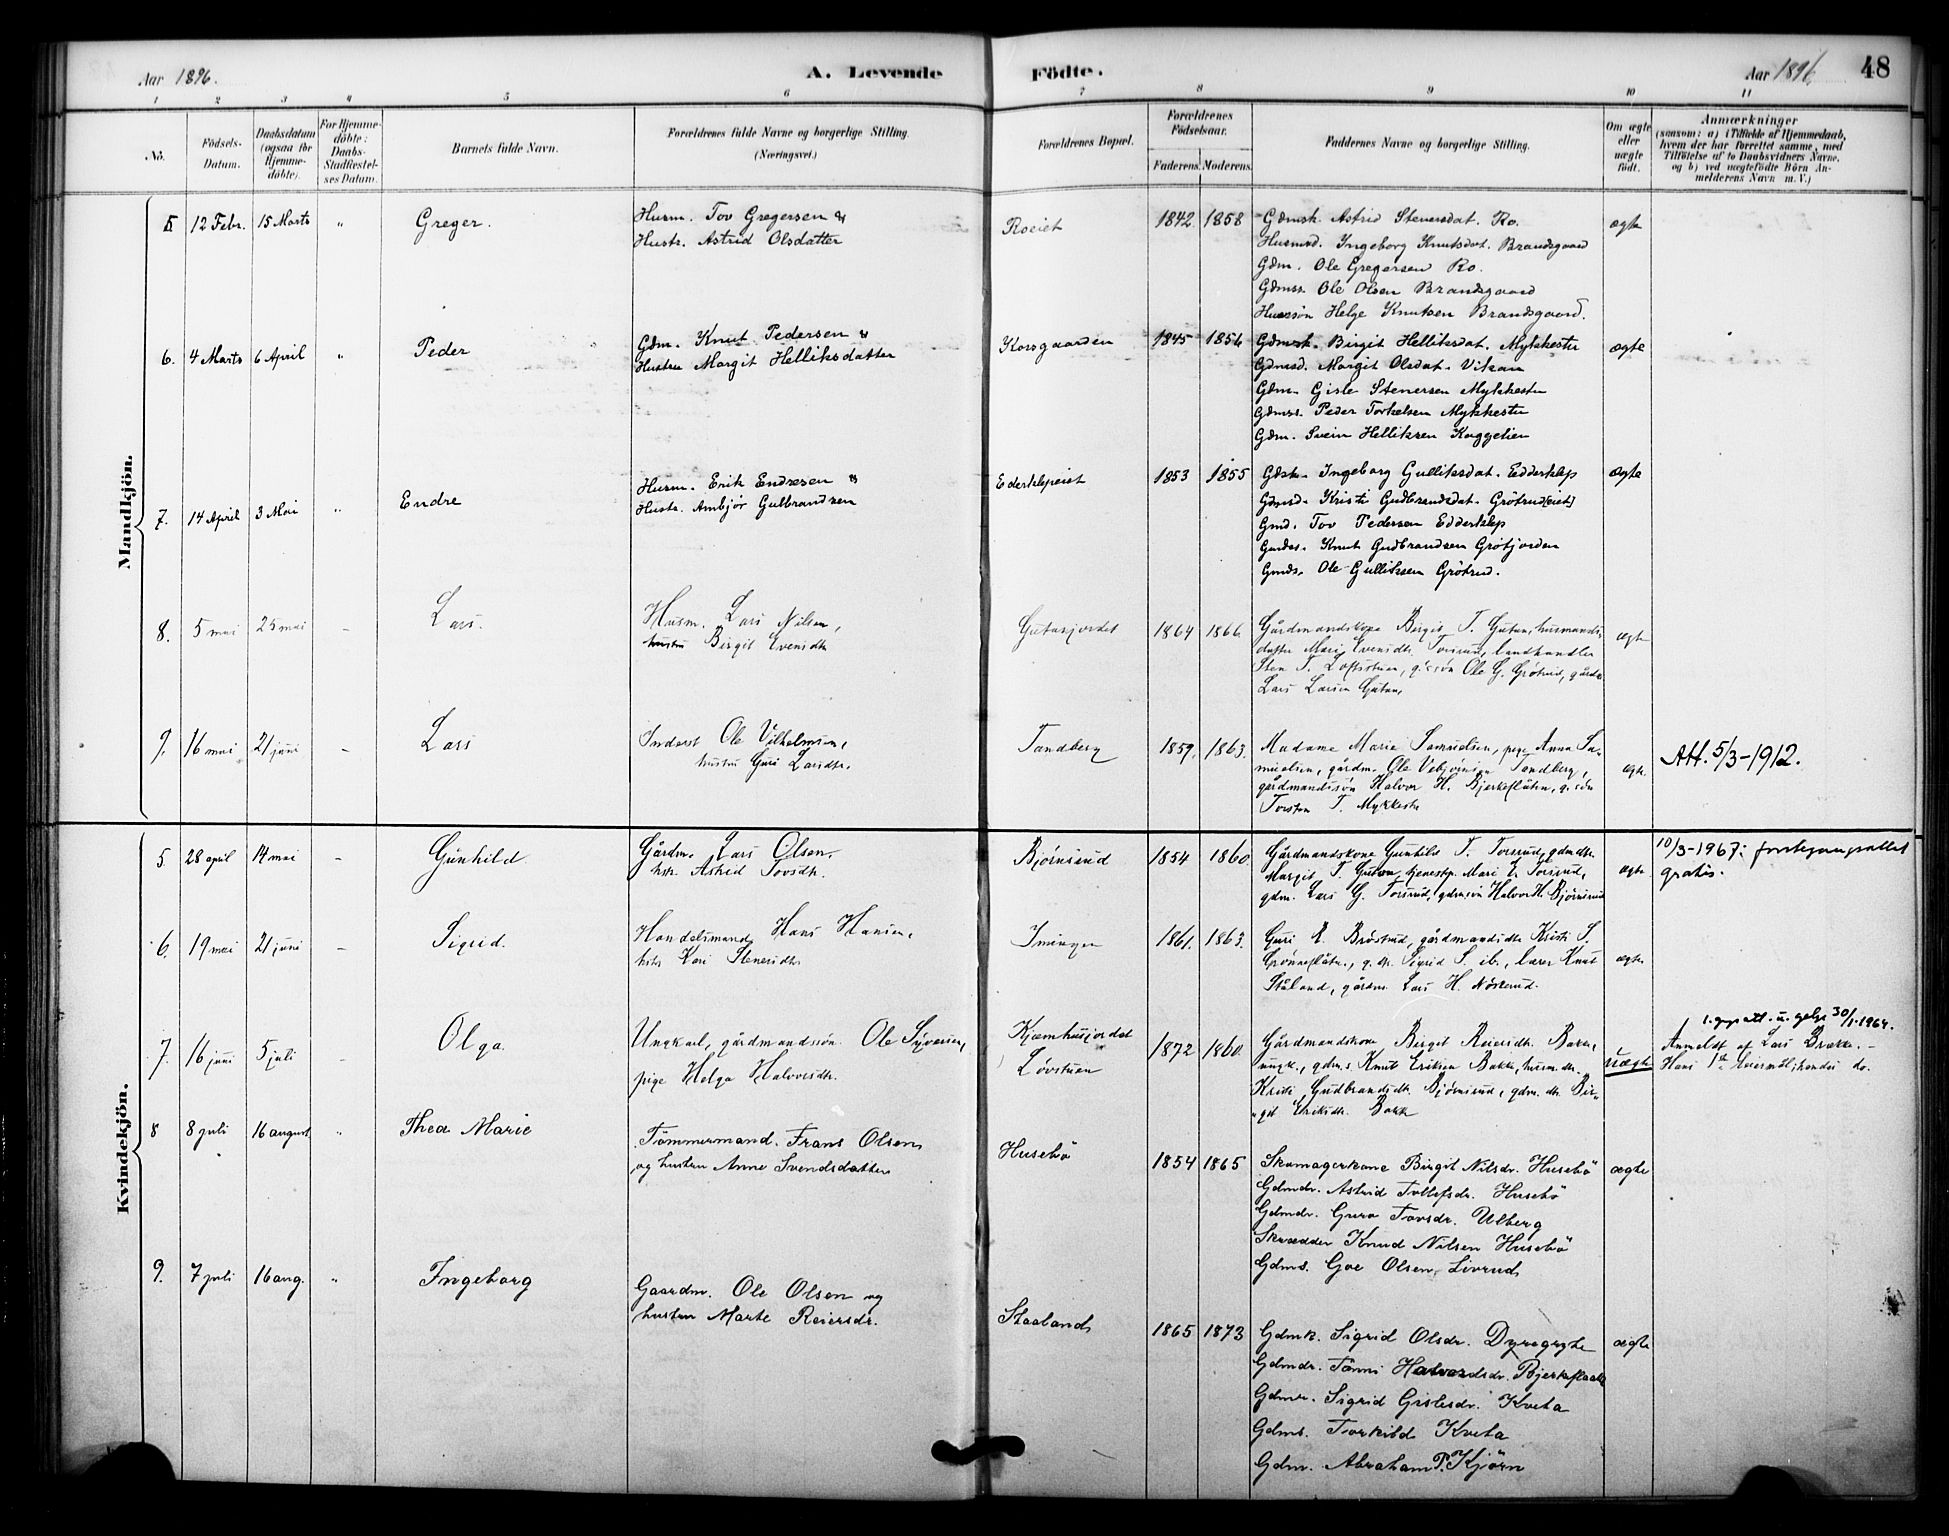 Aar 1896.
A. Levende
Födte.
Aar 1896
48
1 2 3 4 5 6 7 8 9 10 11
No.
Födsels-
Datum.
Daabsdatum
(ogsaa for
Hjemme-
döbte).
For Hjemme-
döbte:
Daabs-
Stadfæstel-
ses Datum.
Barnets fulde Navn.
Forældrenes fulde Navne og borgerlige Stilling.
(Næringsvei.)
Forældrenes Bopæl.
Forældrenes
Födselsaar.
Faderens. Moderens.
Faddernes Navne og borgerlige Stilling.
Om ægte
eller
uægte
födt.
Anmærkninger
(saasom: a) i Tilfælde af Hjemmedaab,
hvem der har forrettet samme, med
Tilföielse af to Daabsvidners Navne.
og b) ved uægtefödte Börn An-
melderens Navn m. V.)
Mandkjön.
5. 12 Febr. 15 Marts " Greger.
Husm. Tov Gregersen &
Hustr. Astrid Olsdatter
Roeiet 1842. 1858
Gdmsk. Astrid Stenersdat. Ro.
Husmd. Ingeborg Knutsdat. Brandsgaard
Gdm. Ole Gregersen Ro.
Gdmss. Ole Olsen Brandsgaard
Hussön Helge Knutsen Brandsgaard.
ægte
6. 4 Marts 6 April " Peder
Gdm. Knut Pedersen &
Hustru Margit Helliksdatter
Korsgaarden 1845 1856
Gdmsk. Birgit Helliksdat. Mykkestu
Gdmsd. Margit Olsdat. Vikan
Gdm. Gisle Stenersen Mykkestu
Gdmss. Peder Torkelsen Mykkestu
Gdm. Svein Helliksen Kaggelien
ægte
7. 14 April 3 Mai " Endre
Husm. Erik Endresen &
Hustr. Ambjør Gulbrandsen
Ederklepeiet 1853 1855
Gdsk. Ingeborg Gulliksdat. Edderklep
Gdmsd. Kristi Gudbrandsdat. Grötrud(eiet)
Gmd. Tov Pedersen Edderklep
Gmdss. Knut Gudbrandsen Grötjorden
Gmds. Ole Gulliksen Grötrud.
ægte
8. 5 mai 25 mai - Lars.
Husm. Lars Nilsen,
hustru Birgit Evensdtr
Gutusjordet 1864 1866.
Gårdmandskone Birgit T. Gutun, husmands-
datter Mari Evensdtr. Torsrud, landhandler
Sten T. Loftsstuen, g. søn Ole G. Grötrud, gårdm
Lars Larsen Gutun,
ægte
9. 16 mai 21 juni - Lars
Inderst Ole Vilhelmsen,
hustru Guri Larsdtr.
Tandberg 1859. 1863.
Madame Marie Samuelsen, pige Anna Sa-
muelsen, gårdm. Ole Vebjørnsen Tandberg,
gårdmandssøn Halvor H. Bjerkeflåtin, g. søn
Torsten T. Mykkestu
ægte.
Att. 5/3-1912.
Kvindekjön.
5. 28 april 14 mai - Gunhild
Gårdm. Lars Olsen,
hstr. Astrid Tovsdtr.
Bjørnsrud 1854 1860.
Gårdmandskone Gunhild T. Torsrud, gdmdtr.
Margit T. Gutun, tjenestp. Mari E. Torsrud,
gdm. Lars G. Torsrud, gdmsøn Halvor H. Bjørnsrud
ægte.
10/3-1967: førstegangsattest
gratis.
6. 19 mai 21 juni - Sigrid.
Handelsmand Hans Hansen,
hstr Kari Stenersdtr
Imingen 1861. 1863.
Guri E. Bröstrud, gårdmandsdtr Kristi S.
Grønneflåtn., g. dtr. Sigrid S. ib., lærer Knut
Ståland, gårdm. Lars H. Nösterud.
ægte.
7. 16 juni 5 juli - Olga.
Ungkarl, gårdmandssøn Ole Syversen,
pige Helga Halvorsdtr.
Kjemhusjordet
Løvstuen 1872 1860.
Gårdmandskone Birgit Reiersdtr. Bakke,
ungk., gdm.s. Knut Eriksen Bakke, husm.dtr.
Kristi Gudbrandsdtr. Bjørnsrud, gdm. dtr. Bir-
git Eriksdtr. Bakk
uægte
30/1-1964.
Anmeldt af Lars Brække.-
Hans 1ste leiermål, hendes do.
8 8 juli 16 august " Thea Marie
Tömmermand. Frans Olsen
og hustru Anne Svendsdatter
Husebö 1854 1865
Skomagerkone Birgit Nilsdr. Husebö
Gdmdr. Astrid Tollefsdr. Husebö
Gdmdr. Guro Tovsdr. Ulberg
Skrædder Knud Nilsen Husebö
Gdms. Goe Olsen Livrud
ægte
9. 7 juli 16 aug. " Ingeborg
Gaardm. Ole Olsen og
hustru Marte Reiersdr.
Staaland 1865 1873
Gdmk. Sigrid Olsdr. Dyregryte
Gdmdr. Tönni Halvordsdr. Bjerkeflaata
Gdmdr. Sigrid Gislesdr. Kveta
Gdms. Torkild Kveta
Gdm. Abraham P. Kjörn
ægte